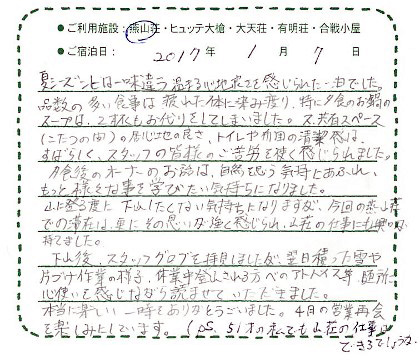 ●ご利用施設:燕山荘・ヒュッテ大槍・大天荘・有明荘・合戦小屋
●ご宿泊日: 2017年 1月 7日
夏シーズンとは一味違う温まる心地良さを感じられた一泊でした。
品数の多い食事は疲れた体に染み渡り、特に夕食のお鍋の
スープは、2杯もお代りをしてしまいました。又、共有スペース
(こたつの間)の居心地の良さ、トイレや布団の清潔感は、
すばらしく、スタッフの皆様のご苦労を強く感じられました。
夕食後のオーナーのお話は、自然を思う気持にあふれ、
もっと様々な事を学びたい気持ちになりました。
山に登る度に下山したくない気持ちになりますが、今回の燕山荘
での滞在は、更にその思いが強く感じられ、山荘の仕事にも興味が
持てました。
下山後、スタッフブログを拝見しましたが、翌日積った雪や
片づけ作業の様子、休業中登山される方へのアドバイス等 随所に
心使いを感じながら読ませていただきました。
本当に楽しい一時をありがとうございました。4月の営業再会
を楽しみにしています。(P.S. 51才の私でも山荘の仕事
できるでしょうか